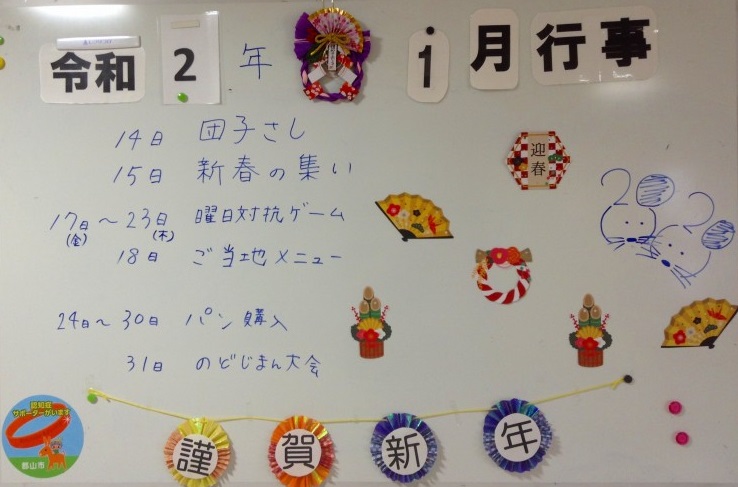 令和2年 1月行事
迎春
14日 団子さし
15日 新春の集い
17日～23日 曜日対抗ゲーム
(金) (木)
18日 ご当地メニュー
24日～30日 パン購入
31日 のどじまん大会
2020
認知症
サポーターがいます
郡山市
謹賀新年